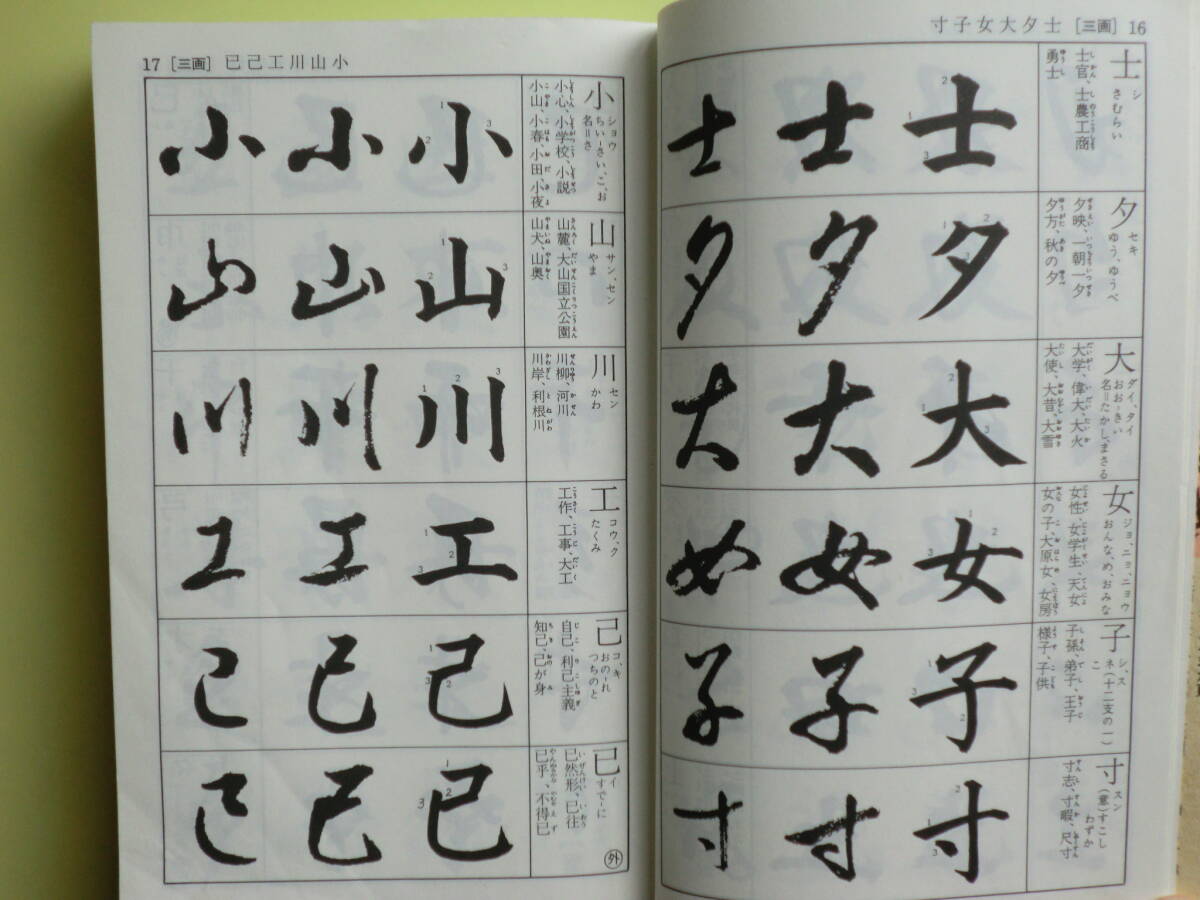 16 [三画] 士夕大女子寸
士
シ
さむらい
士官、士農工商
勇士
士 士 士
夕
セキ
ゆう、ゆうべ
夕映、一朝一夕
夕方、秋の夕
夕 夕 夕
大
ダイ、タイ
おお-きい
名=たかし、まさる
大学、偉大、大火
大使、大昔、大雪
大 大 大
女
ジョ、ニョ、ニョウ
おんな、め、おみな
女性、女学生、天女
女の子、大原女、女房
女 女 女
子
シ、ス
ネ(十二支の一)
こ
子孫、弟子、王子
様子、子供
子 子 子
寸
スン
(意)すこし
わずか
寸志、寸暇、尺寸
寸 寸 寸
17 [三画] 小山川工己已
小
ショウ
ちい-さい、こ、お
名=さ
小心、小学校、小説
小山、小春、小田、小夜
小 小 小
山
サン、セン
やま
山麓、大山国立公園
山犬、山奥
山 山 山
川
セン
かわ
川柳、河川
川岸、利根川
川 川 川
工
コウ、ク
たくみ
工作、工事、大工
工 工 工
己
コ、キ
おの-れ
つちのと
自己、利己主義
知己、己が身
己 己 己
已
イ
すで-に
已然形、已往
已乎、不得已
外
已 已 已